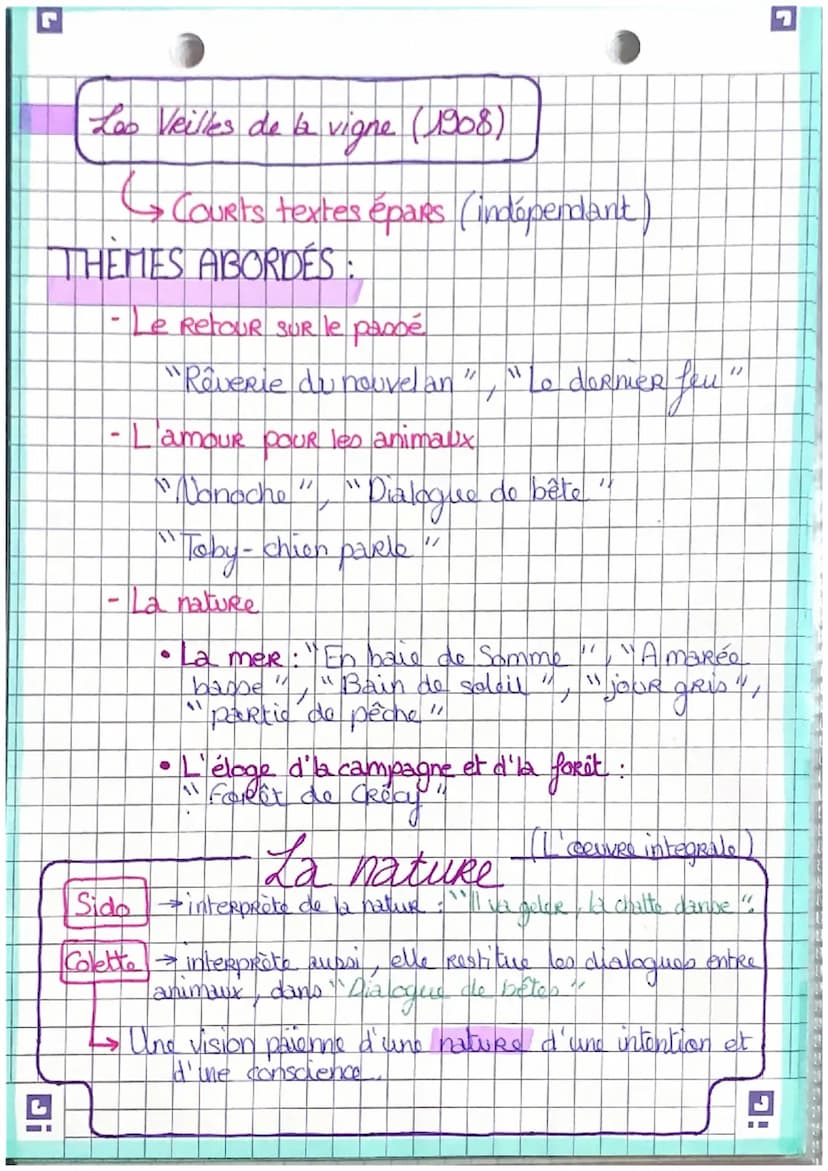 Les Veilles de la vigne (1908)
↳ Courts textes épars (indépendant)
THÈMES ABORDÉS :
- Le retour sur le passé
"Rêverie du nouvel an", "Le dernier feu"
- L'amour pour les animaux
"Nonoche", "Dialogue de bête"
"Toby-chien parle"
- La nature
• La mer : "En baie de Somme", "A marée
basse", "Bain de soleil", "jour gris",
"partie de pêche"
• L'éloge d'la campagne et d'la forêt :
"Forêt de Crécy"
La nature (L'œuvre integrale)
Sido → interprète de la natur : "Il va geler, la chatte danse".
Colette → interprète aussi, elle restitue les dialogues entre
animaux, dans "Dialogue de bêtes"
↳ Une vision païenne d'une nature d'une intention et
d'une conscience.